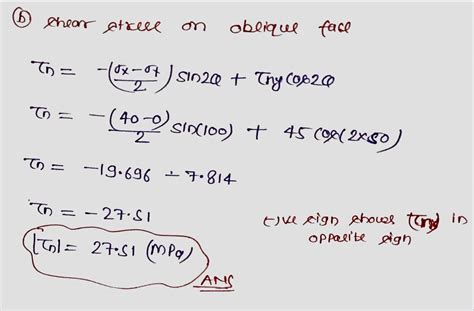 (b) shear stress on oblique face
τn = -(σx-σy/2) sin2θ + τxy cos2θ
τn = -(40-0)/2 sin(100) + 45 cos(2x50)
τn = -19.696 - 7.814
τn = -27.51
(-)ve sign shows (τn) in
opposite sign
|τn| = 27.51 (MPa)
ANS